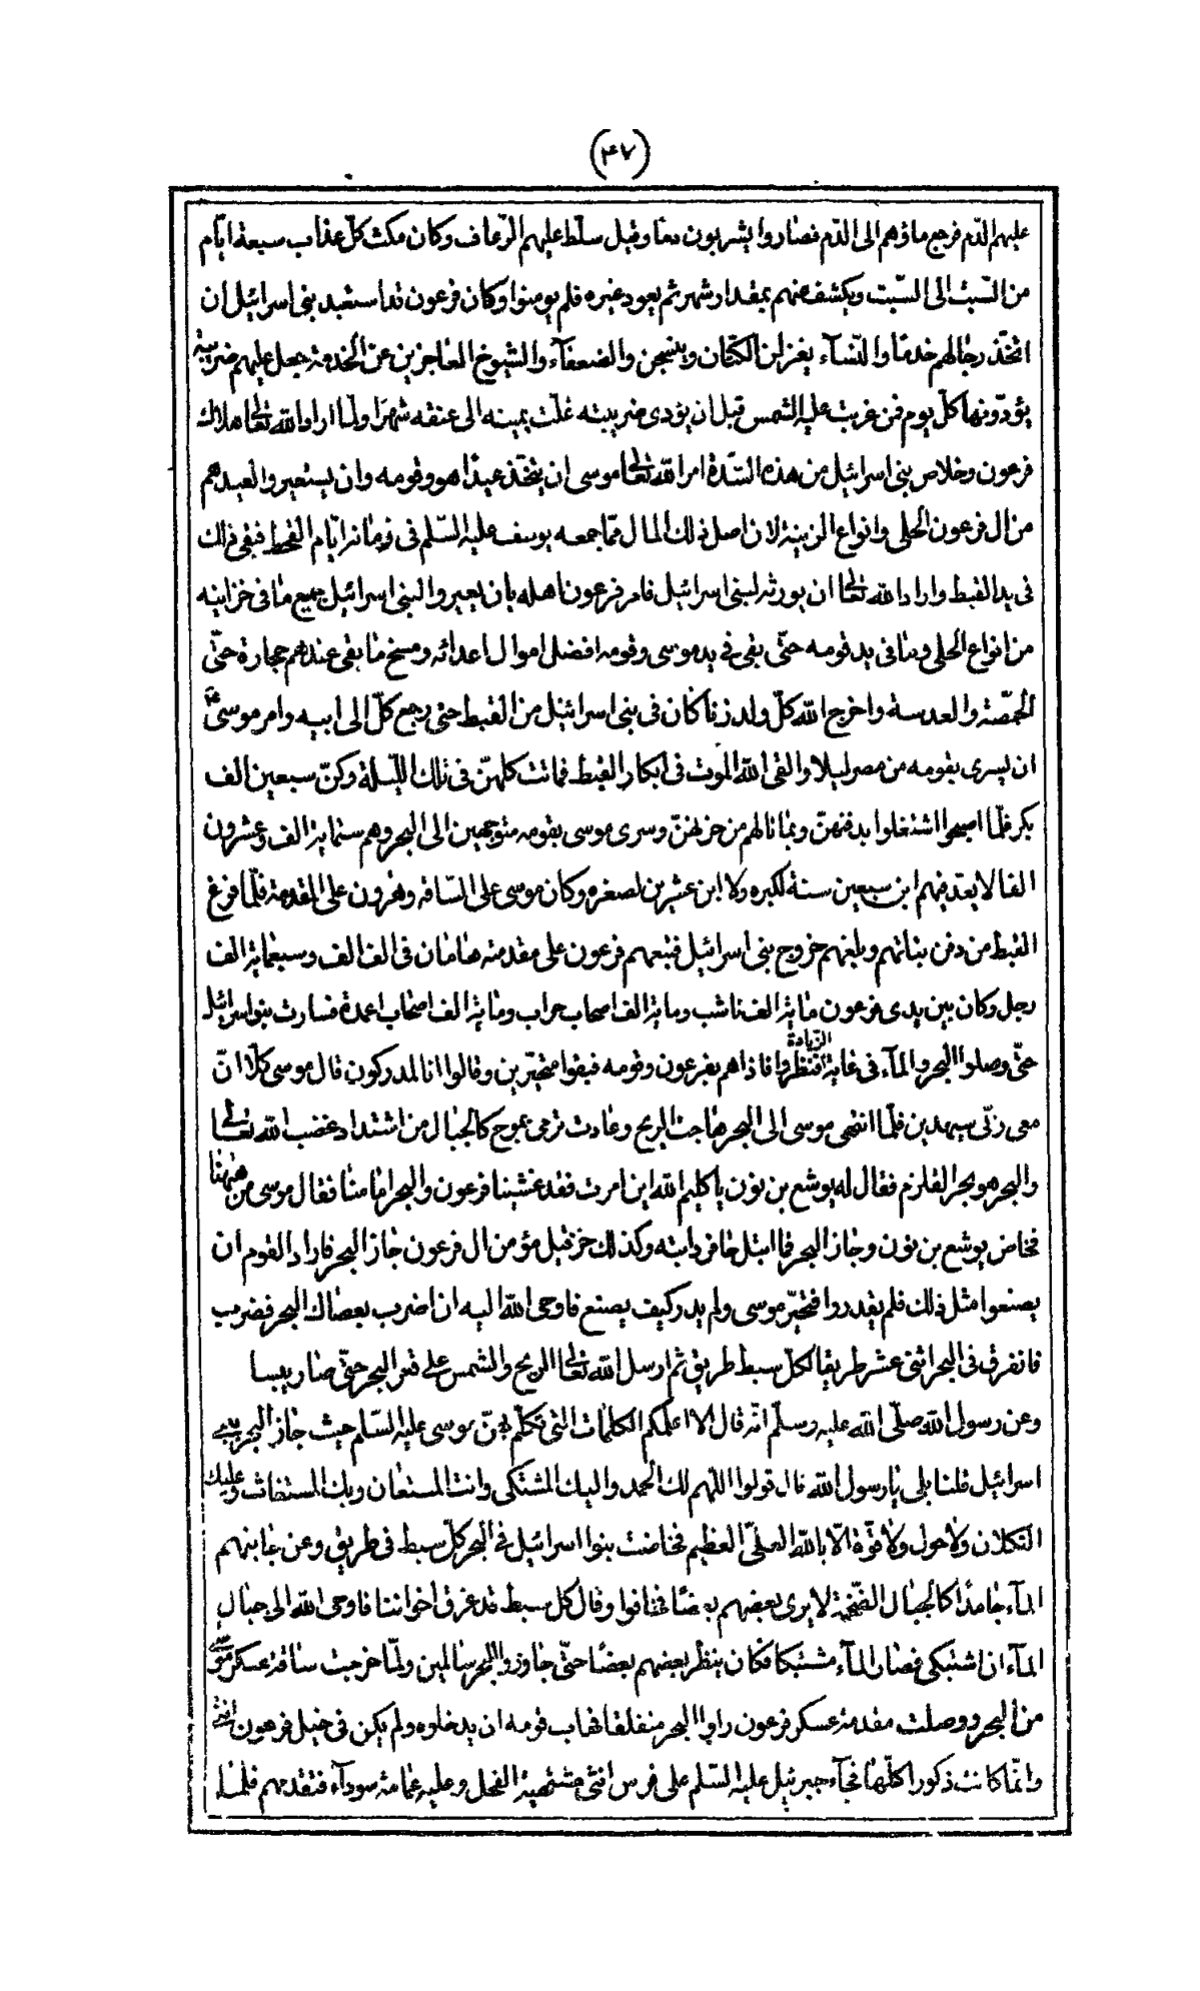 (۴۷)
عليهم الدّم فرجع ماؤهم الى الدّم فصاروا يشربون دما وقيل سلّط عليهم الرّعاف وكان مكث كلّ عذاب سبعة ايّام
من السّبت الى السّبت ويكشف عنهم بمقدار شهر ثم يعود غيره فلم يومنوا وكان فرعون قد استعبد بنى اسرائيل ان
اتخذ رجالهم خدما والنّسآء يغزلن الكتّان وينسجن والضعفآء والشيوخ العاجزين عن الخدمة جعل عليهم ضريبة
يؤدّونها كلّ يوم فمن غربت عليه الشمس قبل ان يؤدى ضريبته غلّت يمينه الى عنقه شهرا ولمّا اراد الله تعالى هلاك
فرعون وخلاص بنى اسرائيل من هذه الشدّة امر الله تعالى موسى ان يتّخذ عيدا هو وقومه وان يستعيروا لعيدهم
من ال فرعون الحلى وانواع الزينة لان اصل ذلك المال ممّا جمعه يوسف عليه السّلم فى زمانه ايّام القحط فبقى ذلك
فى يد القبط واراد الله تعالى ان يورثه لبنى اسرائيل فامر فرعون اهله بان يعيروا لبنى اسرائيل جميع ما فى خزاينه
من انواع الحلى وما فى يد قومه حتّى بقى فى يد موسى وقومه افضل اموال اعدائه ومسخ ما بقى عندهم حجارة حتّى
الحمّصة والعدسة واخرج الله كلّ ولد زنا كان فى بنى اسرائيل من القبط حتى رجع كلّ الى ابيه وامر موسى ع
ان يسرى بقومه من مصر ليلا والقى الله الموت فى ابكار القبط فماتت كلهنّ فى تلك اللّيلة وكنّ سبعين الف
بكر فلمّا اصبحوا اشتغلوا بدفنهنّ وبما نالهم من حزنهنّ وسرى موسى بقومه متوجهين الى البحر وهم ستماية الف وعشرون
الفا لا يعد فيهم ابن سبعين سنة لكبره ولا ابن عشرين لصغره وكان موسى على السّاقه وهرون على المقدمة فلمّا فرغ
القبط من دفن بناتهم وبلغهم خروج بنى اسرائيل فتبعهم فرعون على مقدمته هامان فى الف الف وسبعماية الف
رجل وكان بين يدى فرعون ماية الف ناشب وماية الف اصحاب حراب وماية الف اصحاب اعمدة فسارت بنو اسرائيل
حتّى وصلوا البحر والمآء فى غاية الزّيادة فنظروا فاذا هم بفرعون وقومه فبقوا متحيّرين وقالوا انا لمدركون قال موسى كلّا انّ
معى ربّى سيهدين فلمّا انتهى موسى الى البحر هاجت الريح وعادت ترمى بموج كالجبال من اشتداد غضب الله تعالى
والبحر هو بحر القلزم فقال له يوشع بن نون يا كليم الله اين امرت فقد غشينا فرعون والبحر امامنا فقال موسى من ههنا
فخاض يوشع بن نون وجاز البحر فما ابتل حافر دابته وكذلك حزقيل مؤمن ال فرعون جاز البحر فاراد القوم ان
يصنعوا مثل ذلك فلم يقدروا فتحيّر موسى ولم يدر كيف يصنع فاوحى الله اليه ان اضرب بعصاك البحر فضرب
فانفرق فى البحر اثنى عشر طريقا لكل سبط طريق ثم ارسل الله تعالى الريح والشمس على قعر البحر حتّى صار يبسا
وعن رسول الله صلّى الله عليه وسلّم انّه قال الا اعلمكم الكلمات التى تكلّم بهنّ موسى عليه السّلام حيث جاز البحر ببنى
اسرائيل قلنا بلى يا رسول الله قال قولوا اللهم لك الحمد واليك المشتكى وانت المستعان وبك المستغاث وعليك
التكلان ولا حول ولا قوّة الّا بالله العلىّ العظيم فخاضت بنوا اسرائيل فى البحر كلّ سبط فى طريق وعن جانبيهم
المآء جامدا كالجبال الضّخمة لا يرى بعضهم بعضا فخافوا وقال كل سبط قد غرق اخواننا فاوحى الله الى جبال
المآء ان اشتبكى فصار المآء مشتبكا فكان ينظر بعضهم بعضا حتّى جاوزوا البحر سالمين ولمّا خرجت ساقة عسكر موسى
من البحر ووصلت مقدمة عسكر فرعون راوا البحر منفلقا فهاب قومه ان يدخلوه ولم يكن فى خيل فرعون انثى
وانّما كانت ذكورا كلّها فجآء جبرئيل عليه السّلم على فرس انثى مشتهية الفحل وعليه عمامة سودآء فتقدمهم فلمّا